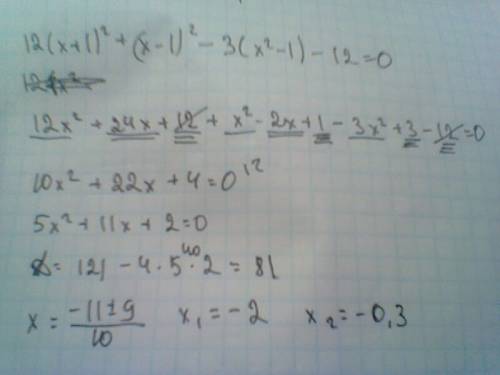 12(x+1)² + (x-1)² - 3(x²-1) - 12=0
12x² + 24x + 12 + x² - 2x + 1 - 3x² + 3 - 12 = 0
10x² + 22x + 4 = 0 |:2
5x² + 11x + 2 = 0
D = 121 - 4 · 5 · 2 = 81
40
x = (-11 ± 9)/10 x₁ = -2 x₂ = -0,3